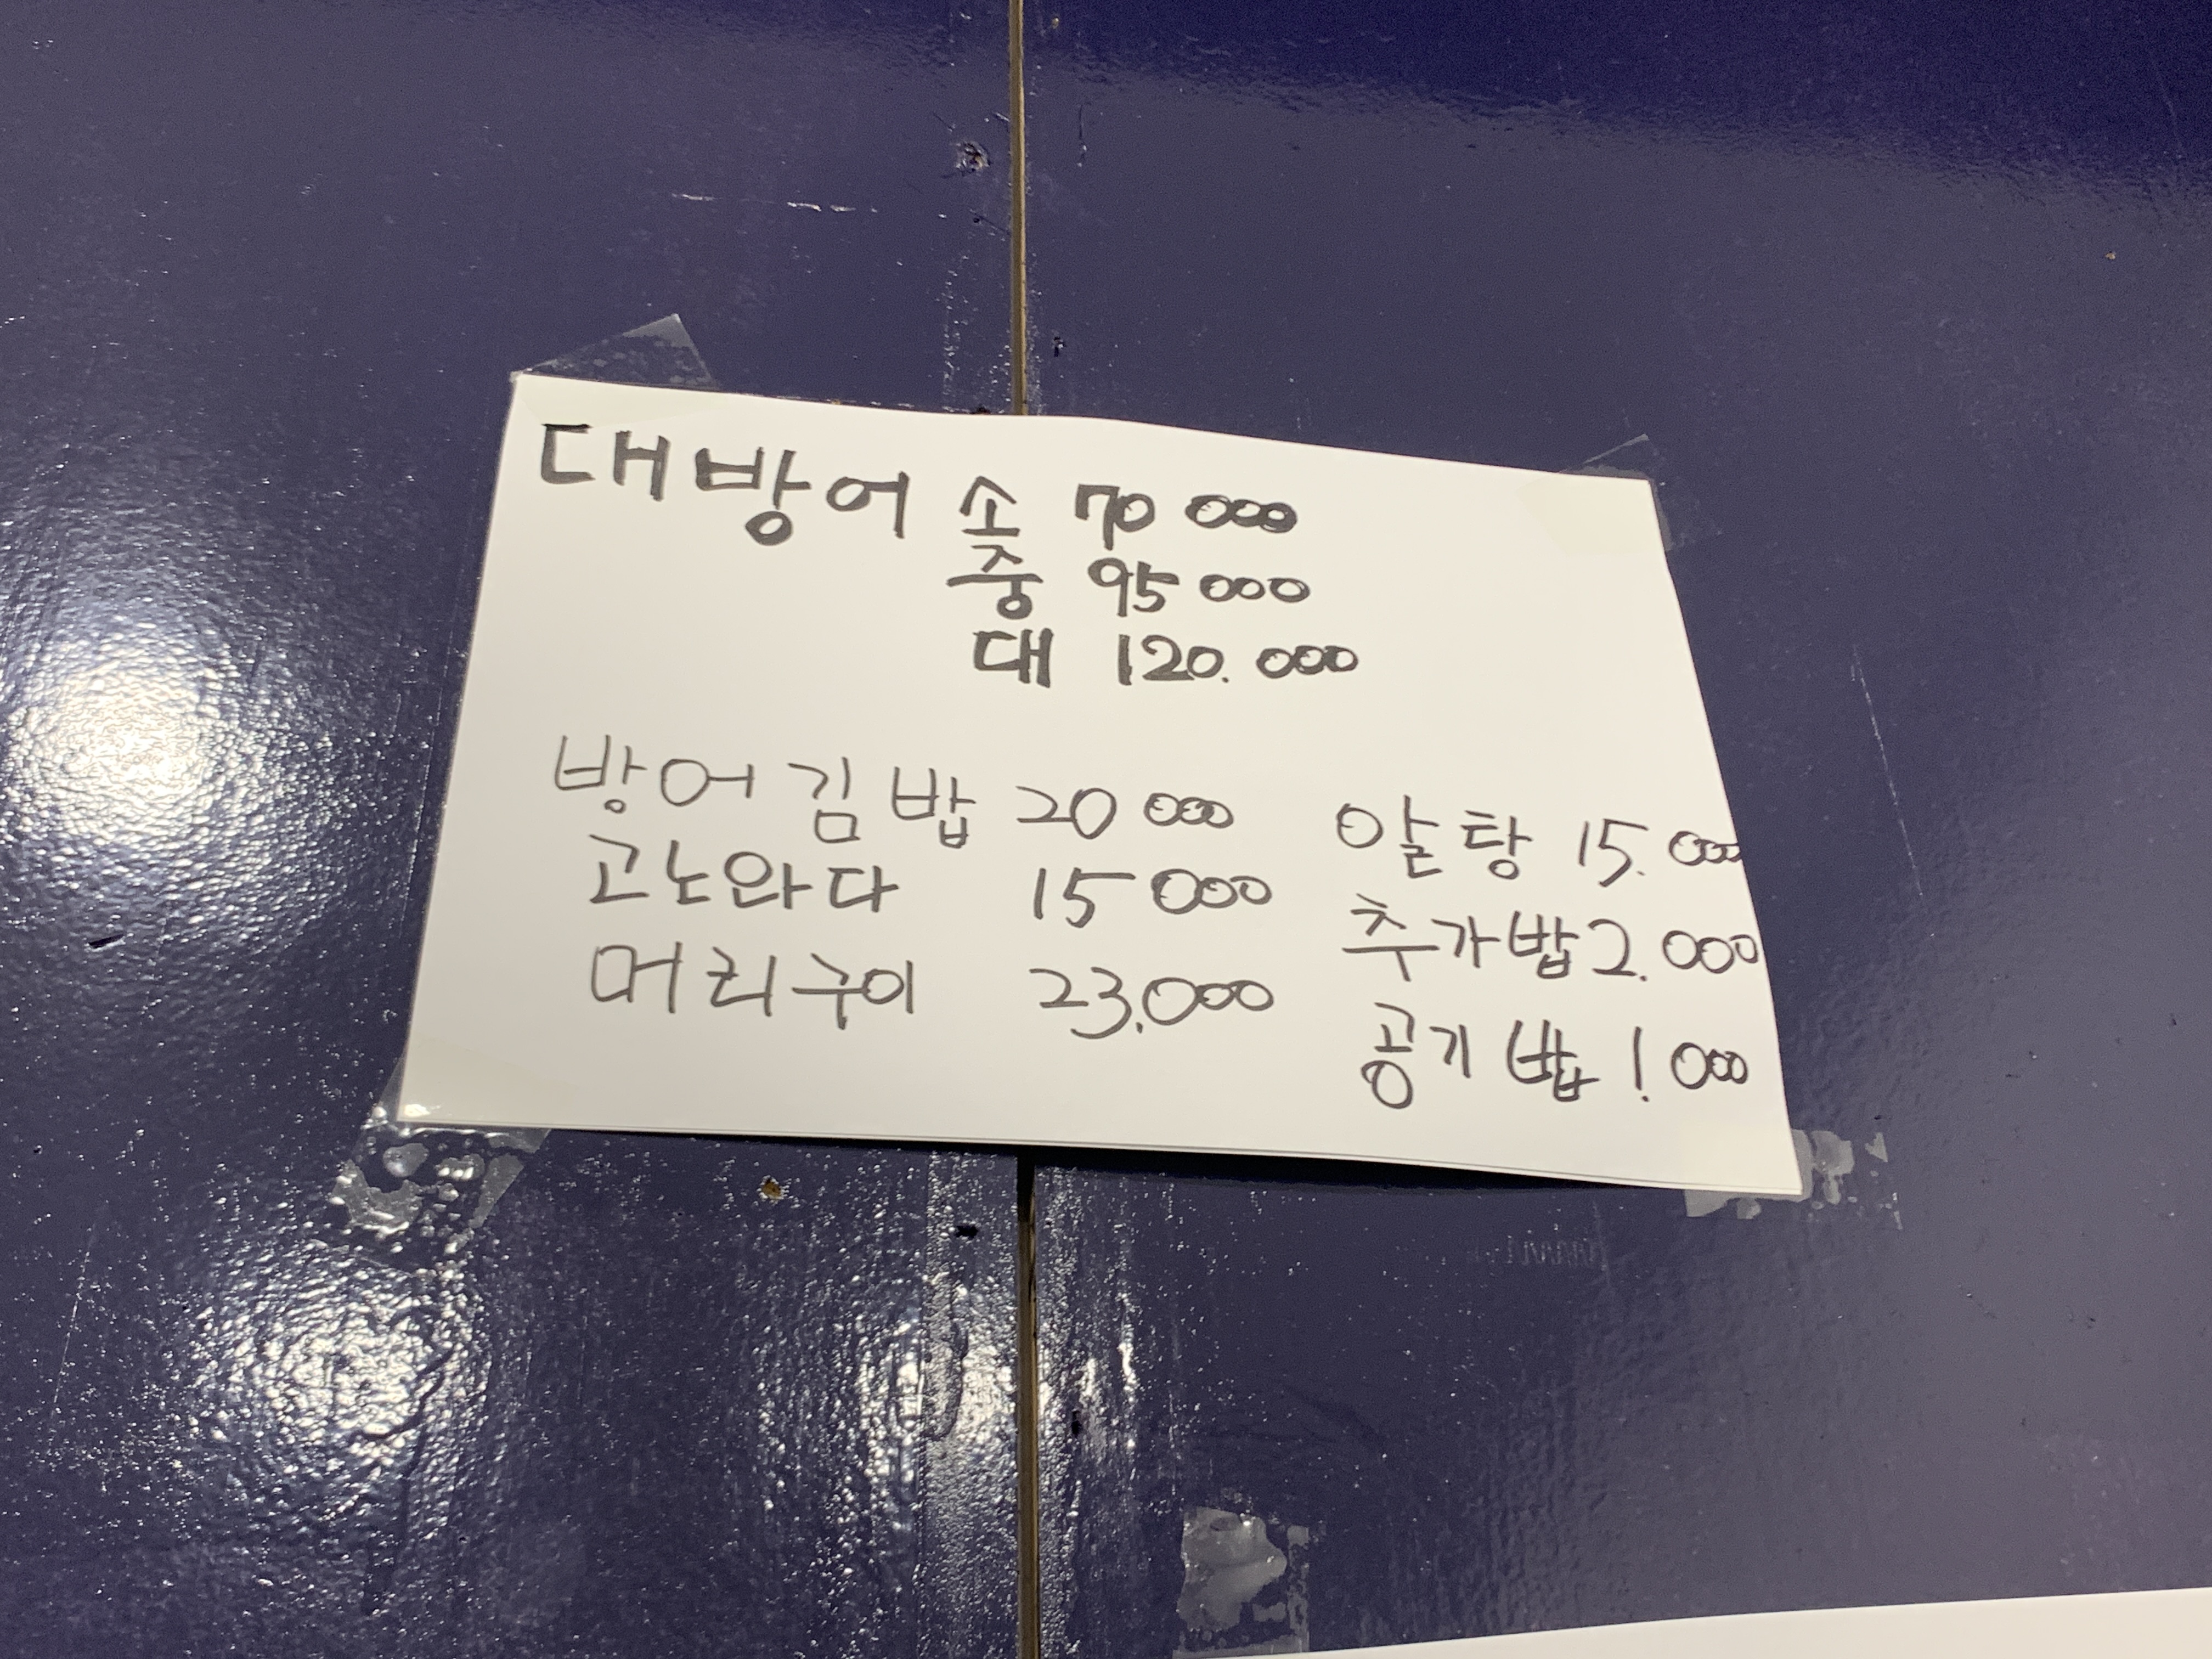 대방어 소 70 000
중 95 000
대 120.000
방어 김밥 20 000
고노와다 15 000
머리구이 23.000
알탕 15.000
추가밥 2.000
공기밥 1.000